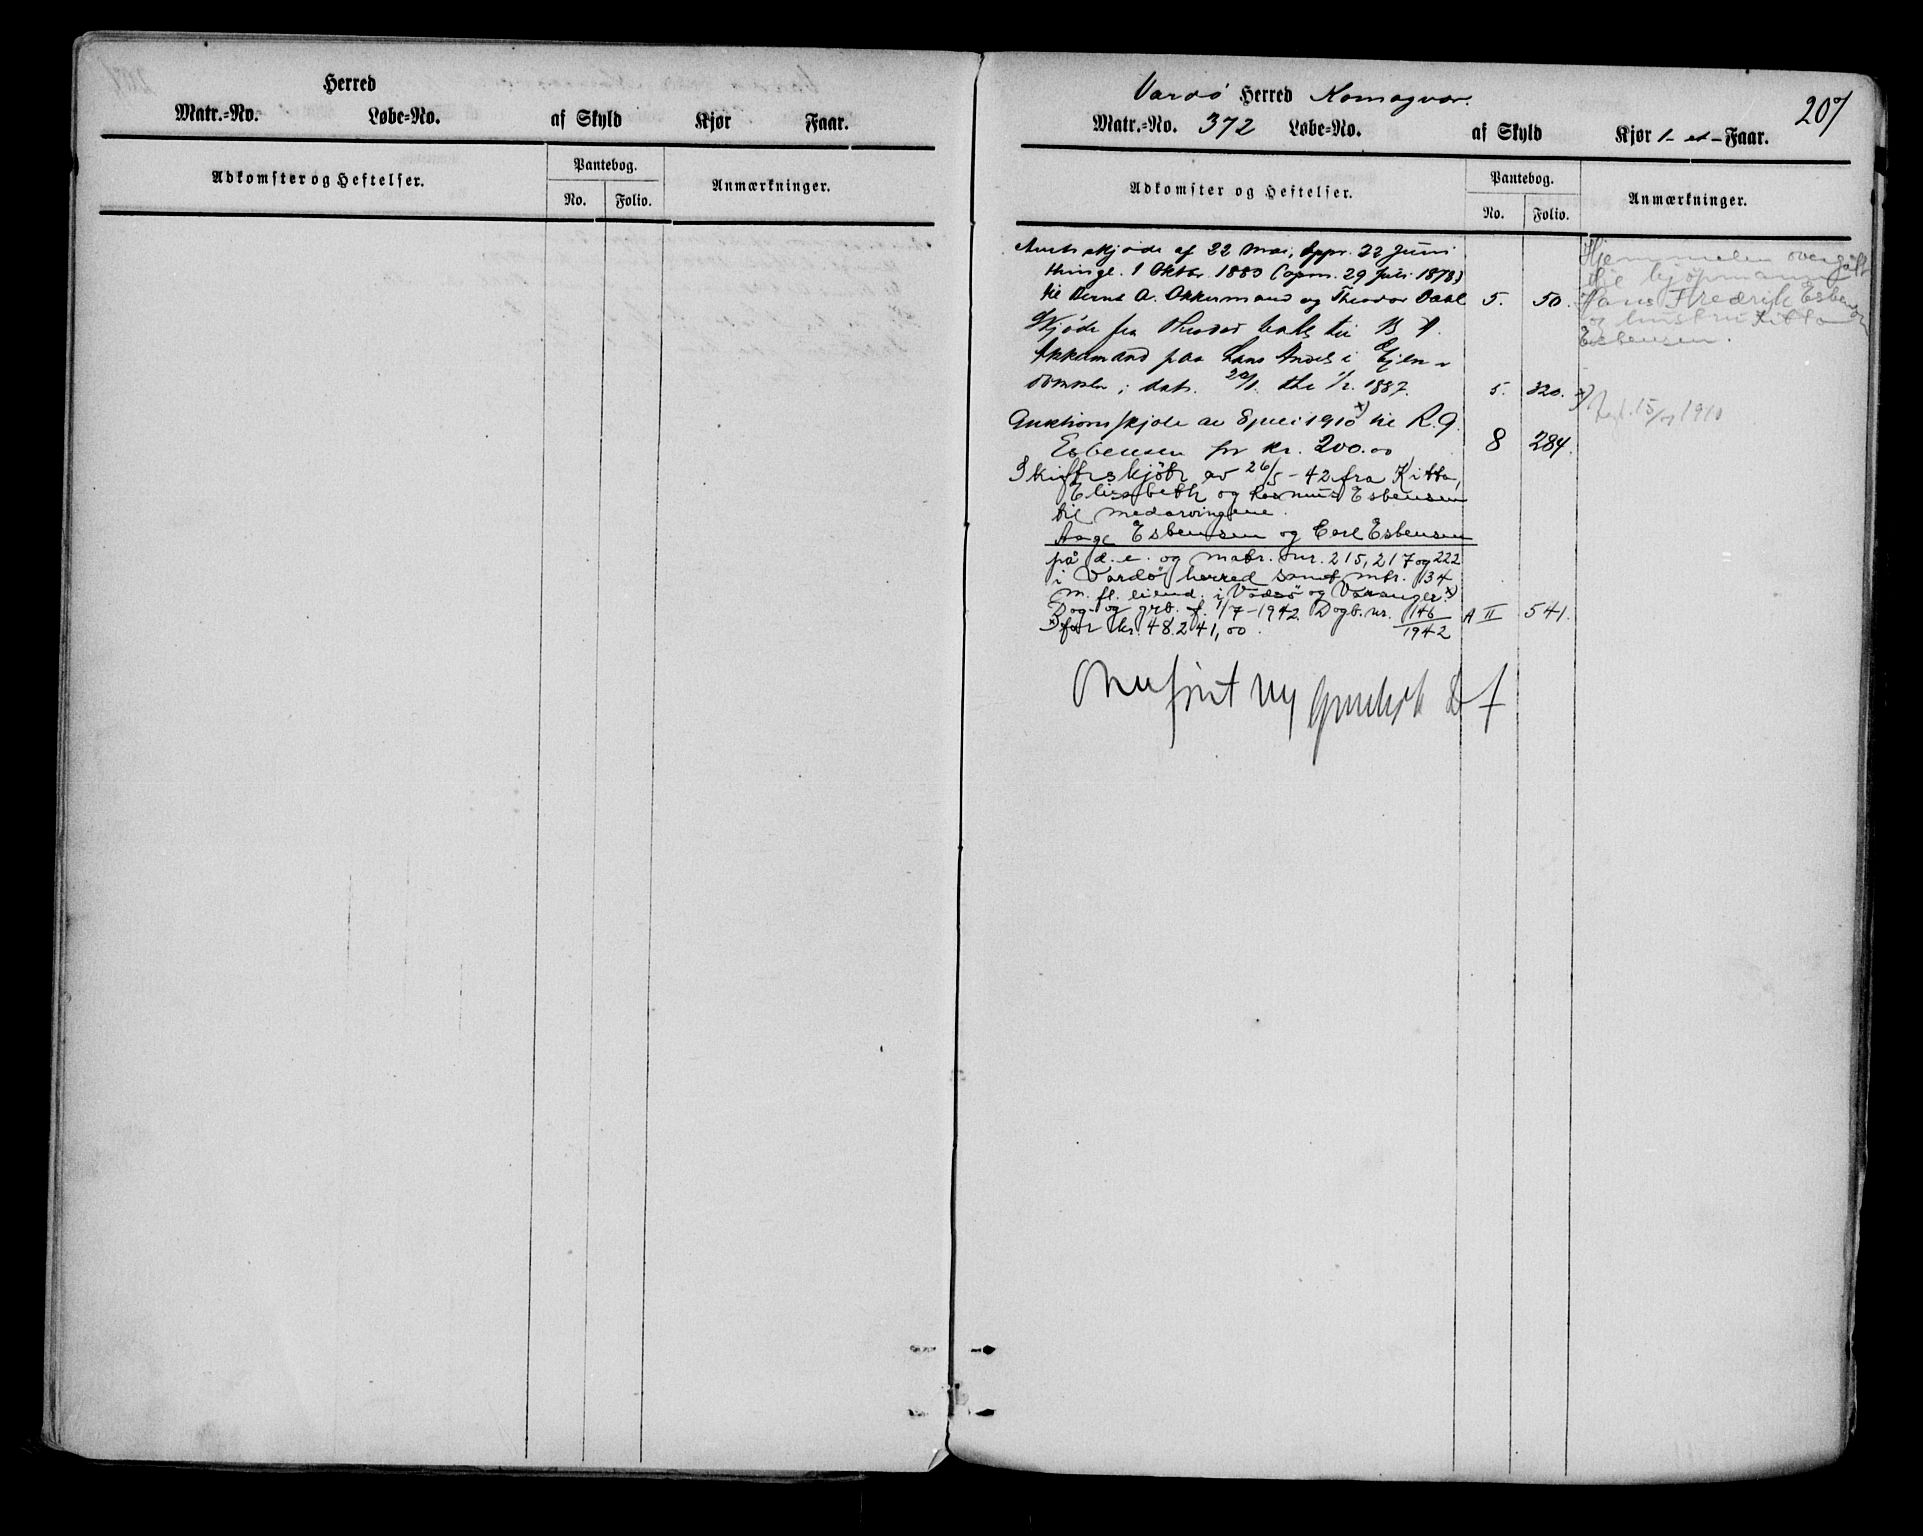 Herred
Matr.=No. Løbe=No. af Skyld Kjør Faar.
Adkomster og Heftelser. Pantebog. Anmærkninger.
No. Folio.
Vardö Herred Komagvær. 207
Matr.=No. 372 Løbe=No. af Skyld Kjør 1- et - Faar.
Adkomster og Heftelser. Pantebog. Anmærkninger.
No. Folio.
Amtsskjøde af 22 Mai, Appr. 22 Juni
thingl. 1 Oktbr. 1880 (opm. 29 Juli 1878)
til Bernt A. Akkermand og Theodor Dahl 5. 50.
Skjøde fra Theodor Dahl til B A.
Akkermand paa hans Andel i Ejen-
dommen; dat. 20/1. thl 1/2. 1887. 5. 320.
Auktionsskjøde av 8 juli 1910 x) til R. G.
Esbensen for kr. 200.00 8 284.
Skifteskjöte av 26/5 - 42 fra Kitta,
Elisabeth og Rasmus Esbensen
til medarvingene
Aage Esbensen og Carl Esbensen
på d. e. og matr. nr. 215, 217 og 222
i Vardö herred samt mtr. 34
m. fl. eiend. i Vadsö og Varanger. x)
Dog- og grb. f. 1/7 - 1942 Dogb. nr. 146/1942 A II 541.
x) for kr. 48.241,00.
Hjemmelen overgått
til kjöpmann
Hans Fredrik Esbensen
og hustru Kitta
Esbensen.
x) 1910
Overfört ny grunnbok